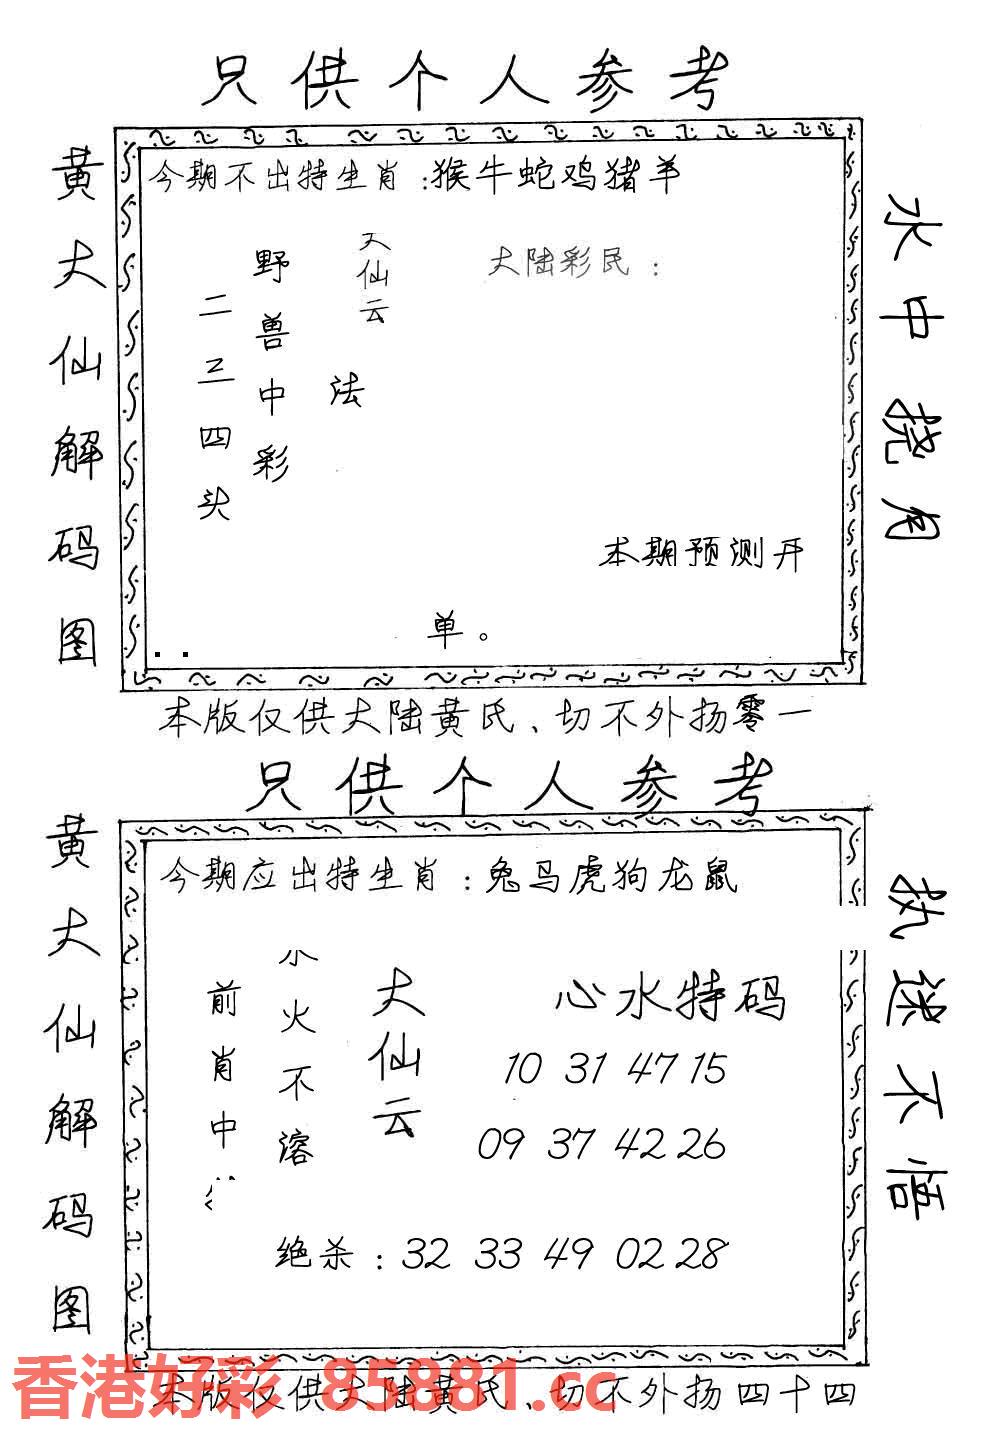 只供个人参考
黄大仙解码图
今期不出特生肖:猴牛蛇鸡猪羊
大仙云
法
野兽中彩
二三四头
大陆彩民:
本期预测开
单。
水中捞月
本版仅供大陆黄氏、切不外扬零一
只供个人参考
黄大仙解码图
今期应出特生肖:兔马虎狗龙鼠
大仙云
水火不溶
前肖中
心水特码
10 31 47 15
09 37 42 26
绝杀:32 33 49 02 28
执迷不悟
香港好彩 85881.cc
本版仅供大陆黄氏、切不外扬四十四